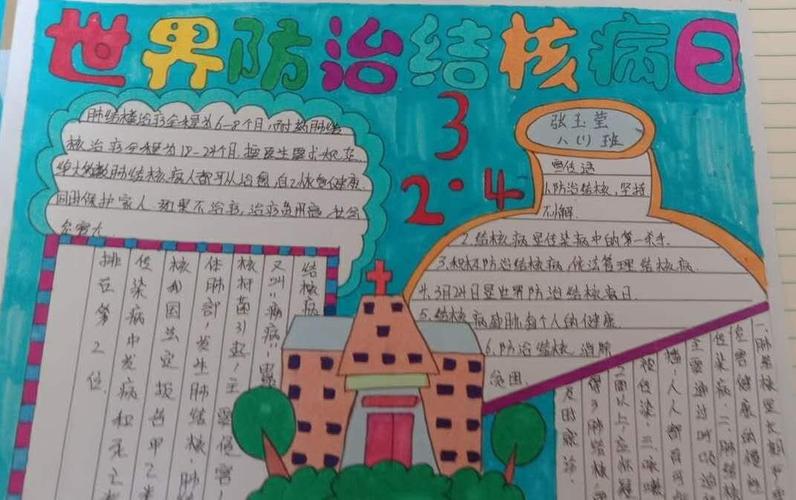 世界防治结核病日
3
2·4
肺结核治疗全程为6-8个月，耐药肺结
核治疗全程为18-24个月，按医生要求规范
绝大多数肺结核病人都可以治愈，自己恢复健康，
同时保护家人，如果不治疗，治疗费用高，社会
危害大
张玉莹
八(1)班
宣传语
1.防治结核，坚持
不懈.
2.结核病是传染病中的第一杀手.
3.积极防治结核病，依法管理结核病.
4.3月24日是世界防治结核病日.
5.结核病威胁每个人的健康.
6.防治结核，消除
贫困.
结核病
又叫“痨病”，是
核杆菌引起，主要侵害
体肺部，发生肺结核，肺
核我国法定报告甲乙类
传染病中发病和死亡
排在第2位.
一、肺结核是长期
危害健康的慢
传染病.二、肺结核
主要通过呼吸道
播，人人都有可
被传染.三、咳嗽
2周以上，应怀疑
得了肺结核，
及时就诊.